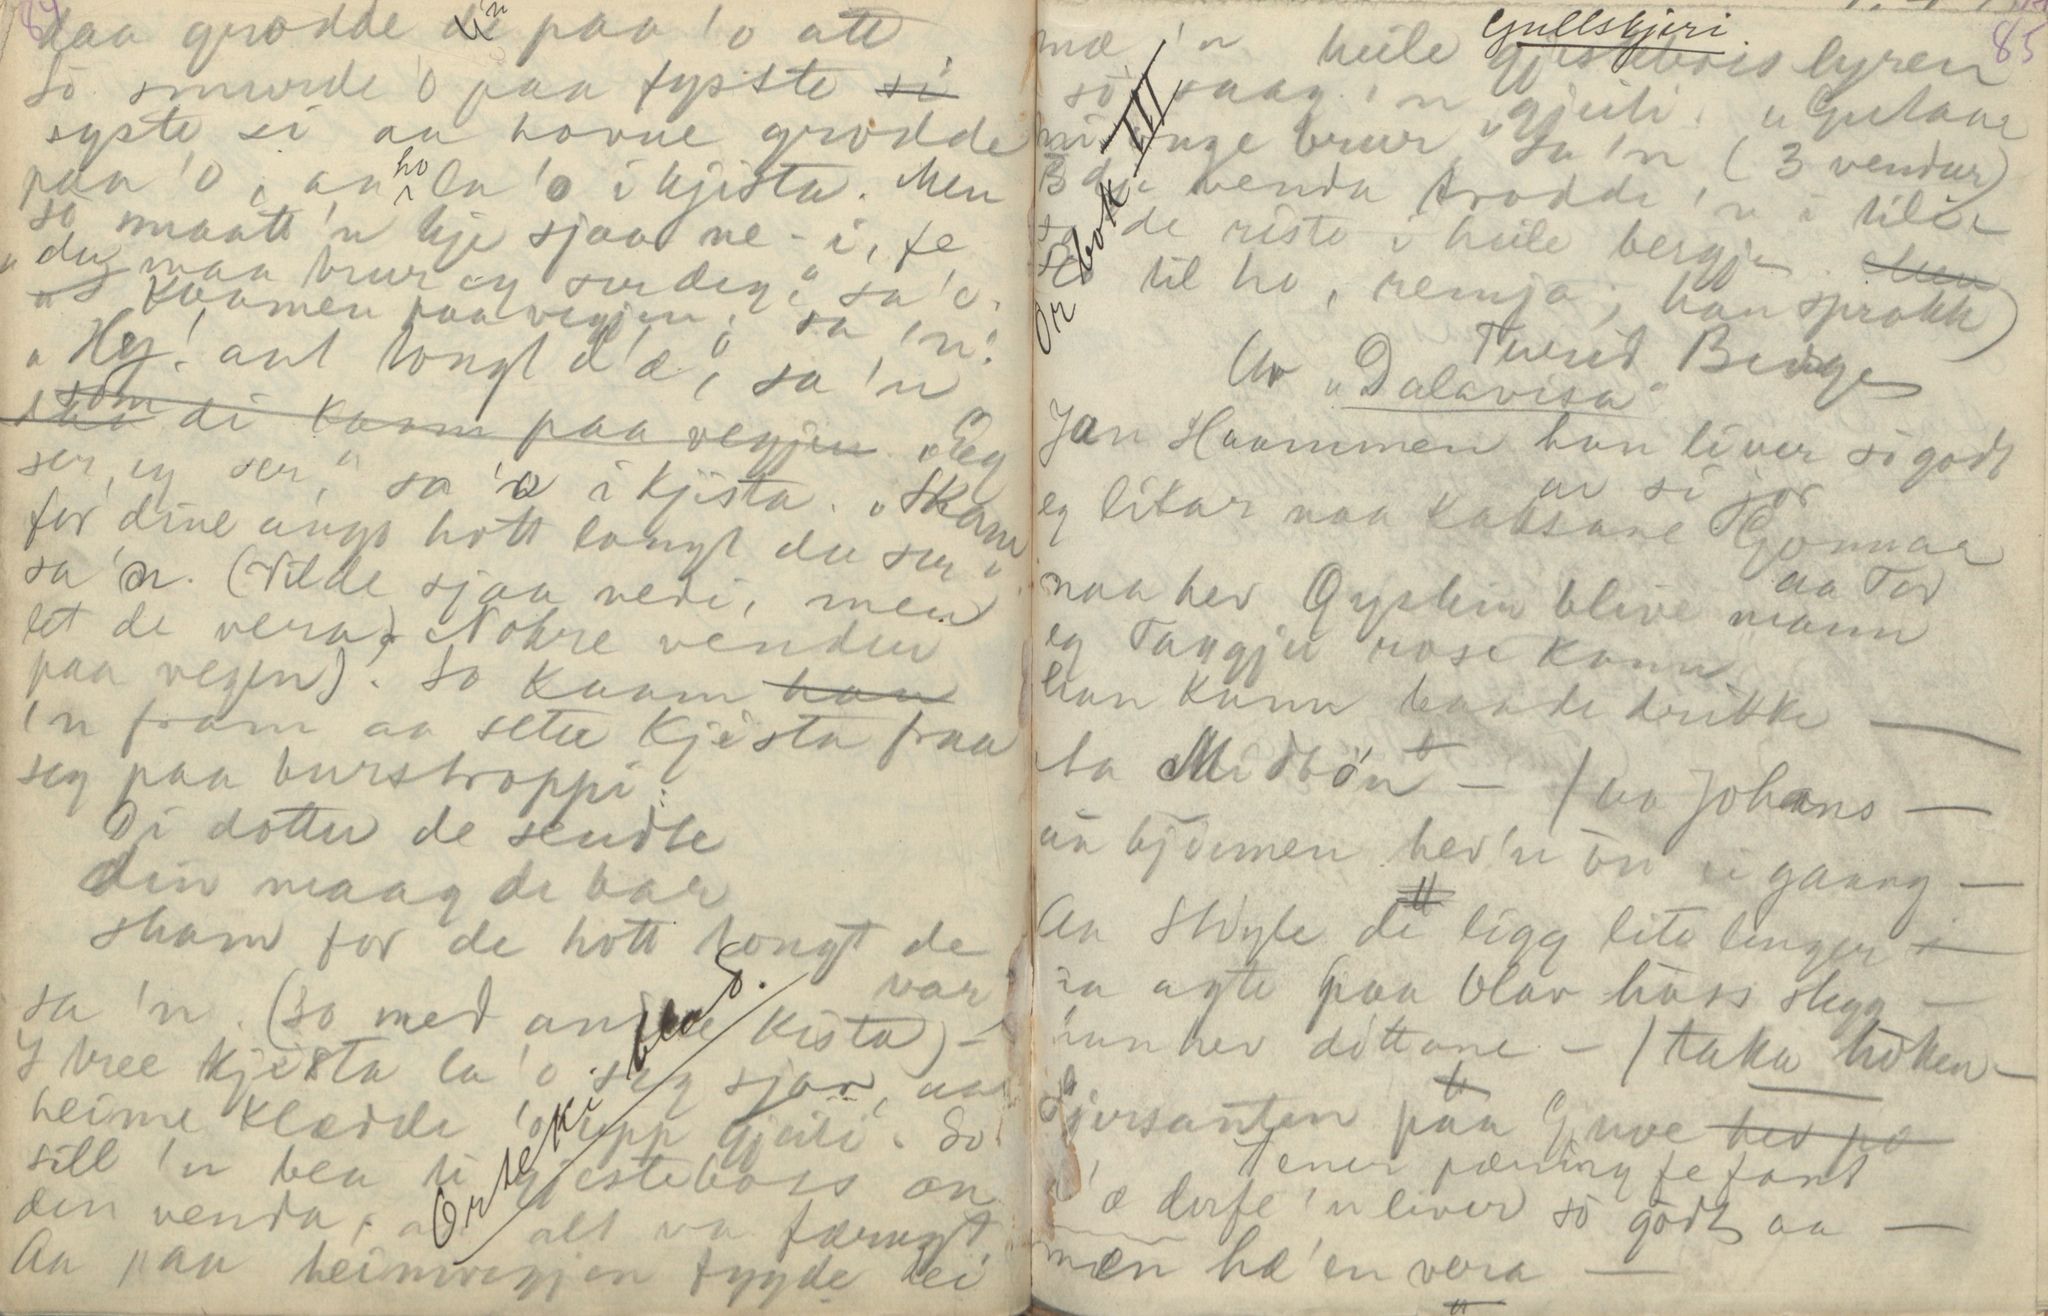 84
daa grodde di'n paa 'o att
So smurde 'o paa fysste si
syste si aa hovue grodde
paa 'o, aa ho la 'o i kjista. Men
so maatt 'n kje sjaa ne-i, fe
"du maa trur eg ser deg" sa 'o.
kaamen paa vegjen, sa 'n:
"Hey! ant longt d'æ", sa 'n
som di kaam paa vegjen. "Eg
ser, eg ser," sa 'o i kjista. "Skam
for dine augo hott langt du ser"
sa 'n. (Vilde sjaa nedi, men
let de vera) Nokre vendur
paa vegen). So kaam han
'n fram aa sette kjista fraa
seg paa burstroppi:
Di dotter de sendte
din maag de bar
skam for de hott longt de
var
sa 'n. (so med andre kista) -
I tree kjista la 'o seg sjøv, aa
heime klædde 'o upp gjeiti. So
sill 'n bea ti gjestebors on
den venda, alt va færugt
Aa paa heimvegjen fygde dei
Or teki bla S.
85
Gullskjeri.
mæ 'n heile gjestebors lyren
so saag 'n gjeiti. "Gutaar
mi unge brur" sa 'n (3 vendur)
3 dia venda trodde 'n i til
so de riste i heile bergjen. Men
til ho, remja, han sprakk)
Or bok III
Turid Berge
Ur "Dalavisa"
Jan Haammen han liver so godt
av si jor
eg likar naa kaksane Gonnar
aa Tor
naa hev Øystein blive mann
eg Taugju rose kann
han kann baade drikke —
ta Midbøn — / aa Johans —
aa bjørnen hev 'n ön i gaang —
Aa Støyle de ligg lite lenger i
ra agte paa blav hass skjegg —
han hev döttane — / taka höken —
Sjersanten paa Gruve hev pæ
Tener pæning fe fant
d'æ derfe 'n liver so godt aa —
mæn hæ 'en vera —